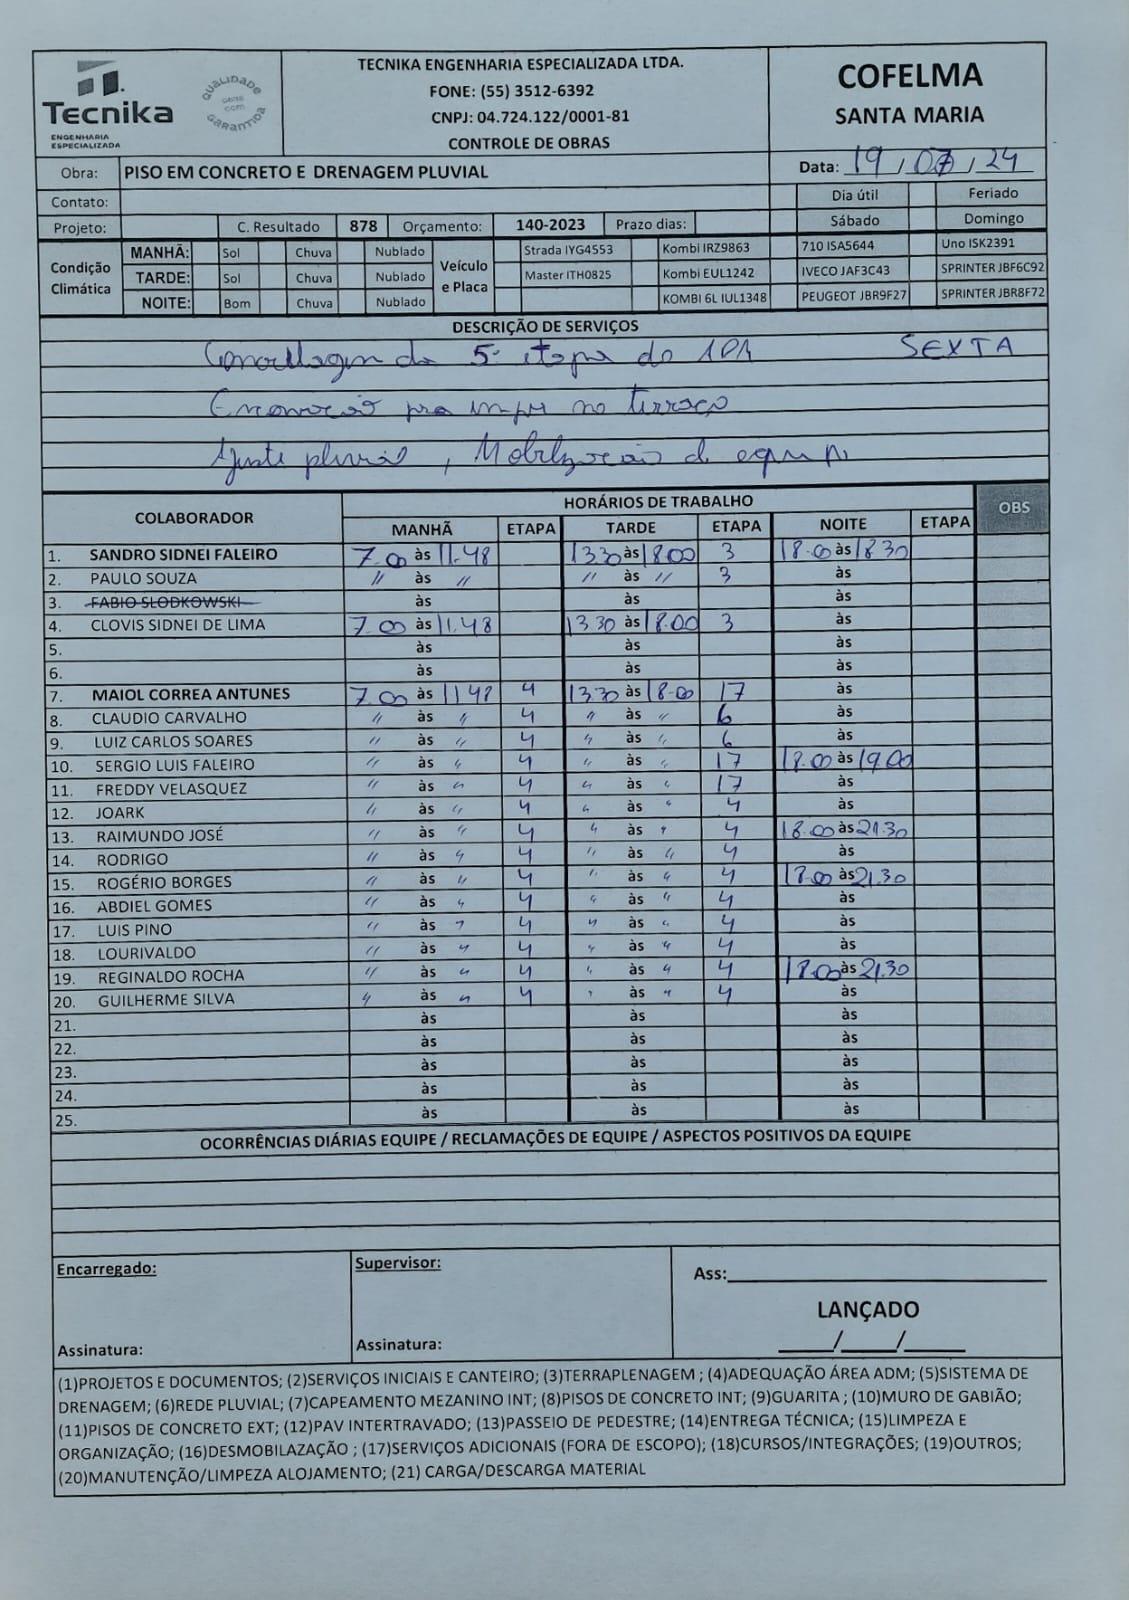 Tecnika
ENGENHARIA
ESPECIALIZADA
QUALIDADE
GARANTIDA
TECNIKA ENGENHARIA ESPECIALIZADA LTDA.
FONE: (55) 3512-6392
CNPJ: 04.724.122/0001-81
CONTROLE DE OBRAS
COFELMA
SANTA MARIA
Obra: PISO EM CONCRETO E DRENAGEM PLUVIAL
Data: 19 / 07 / 24
Contato:
Dia útil Feriado
Projeto: C. Resultado 878 Orçamento: 140-2023 Prazo dias:
Sábado Domingo
Condição Climática
MANHÃ: Sol Chuva Nublado
TARDE: Sol Chuva Nublado
NOITE: Bom Chuva Nublado
Veículo e Placa
Strada IYG4553 Kombi IRZ9863 710 ISA5644 Uno ISK2391
Master ITH0825 Kombi EUL1242 IVECO JAF3C43 SPRINTER JBF6C92
KOMBI 6L IUL1348 PEUGEOT JBR9F27 SPRINTER JBR8F72
DESCRIÇÃO DE SERVIÇOS
5ª etapa do SEXTA
pra no terraço
Ajuste pluvial , Mobilização de
COLABORADOR HORÁRIOS DE TRABALHO OBS
MANHÃ ETAPA TARDE ETAPA NOITE ETAPA
1. SANDRO SIDNEI FALEIRO 7.00 às 11.48 13.30 às 18.00 3 18.00 às 18.30
2. PAULO SOUZA " às " " às " 3 às
3. FABIO SLODKOWSKI às às às
4. CLOVIS SIDNEI DE LIMA 7.00 às 11.48 13.30 às 18.00 3 às
5. às às às
6. às às às
7. MAIOL CORREA ANTUNES 7.00 às 11.48 4 13.30 às 18.00 17 às
8. CLAUDIO CARVALHO " às " 4 " às " 6 às
9. LUIZ CARLOS SOARES " às " 4 " às " 6 às
10. SERGIO LUIS FALEIRO " às " 4 " às " 17 18.00 às 19.00
11. FREDDY VELASQUEZ " às " 4 " às " 17 às
12. JOARK " às " 4 " às " 4 às
13. RAIMUNDO JOSÉ " às " 4 " às " 4 18.00 às 21.30
14. RODRIGO " às " 4 " às " 4 às
15. ROGÉRIO BORGES " às " 4 " às " 4 18.00 às 21.30
16. ABDIEL GOMES " às " 4 " às " 4 às
17. LUIS PINO " às " 4 " às " 4 às
18. LOURIVALDO " às " 4 " às " 4 às
19. REGINALDO ROCHA " às " 4 " às " 4 18.00 às 21.30
20. GUILHERME SILVA " às " 4 " às " 4 às
21. às às às
22. às às às
23. às às às
24. às às às
25. às às às
OCORRÊNCIAS DIÁRIAS EQUIPE / RECLAMAÇÕES DE EQUIPE / ASPECTOS POSITIVOS DA EQUIPE
Encarregado: Supervisor: Ass:
LANÇADO
Assinatura: Assinatura: / /
(1)PROJETOS E DOCUMENTOS; (2)SERVIÇOS INICIAIS E CANTEIRO; (3)TERRAPLENAGEM ; (4)ADEQUAÇÃO ÁREA ADM; (5)SISTEMA DE
DRENAGEM; (6)REDE PLUVIAL; (7)CAPEAMENTO MEZANINO INT; (8)PISOS DE CONCRETO INT; (9)GUARITA ; (10)MURO DE GABIÃO;
(11)PISOS DE CONCRETO EXT; (12)PAV INTERTRAVADO; (13)PASSEIO DE PEDESTRE; (14)ENTREGA TÉCNICA; (15)LIMPEZA E
ORGANIZAÇÃO; (16)DESMOBILAZAÇÃO ; (17)SERVIÇOS ADICIONAIS (FORA DE ESCOPO); (18)CURSOS/INTEGRAÇÕES; (19)OUTROS;
(20)MANUTENÇÃO/LIMPEZA ALOJAMENTO; (21) CARGA/DESCARGA MATERIAL